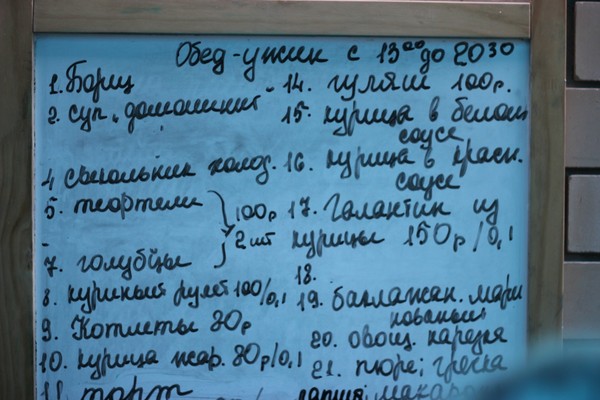 Обед-ужин с 13⁰⁰ до 20³⁰
1. Борщ
2. суп "домашний"
4 свекольник холод.
5. тефтели
100р
2 шт
7. голубцы
8. куриный рулет 100/0,1
9. Котлеты 80р
10. курица жар. 80р/0,1
11. торт
14. гуляш 100р.
15. курица в белом
соусе
16. курица в красн.
соусе
17. Галантин из
курицы 150р/0,1
18.
19. баклажан. мари
нованный
20. овощ. нарезка
21. пюре; гречка
лапша; макаро